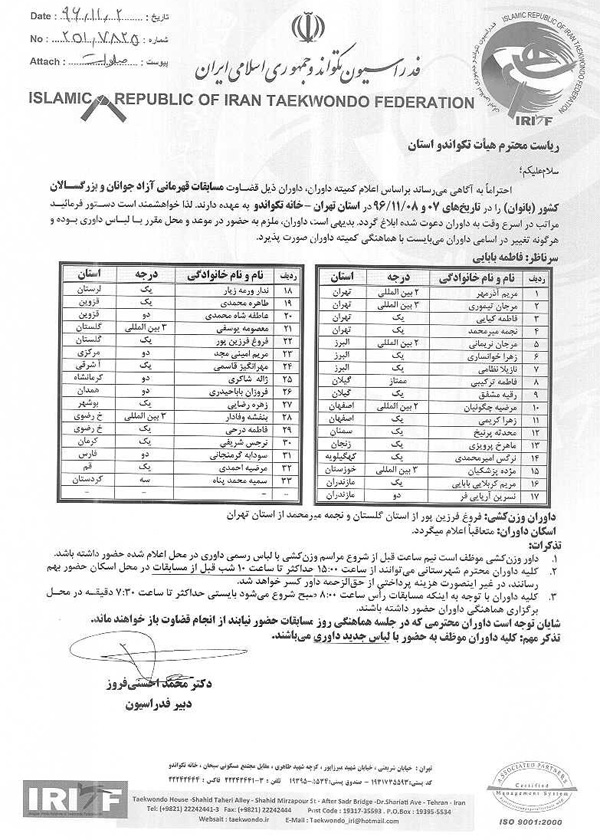 Date : ۹۶/۱۱/۲ تاریخ :
No : ۲۵۱,۷۸۲۵ شماره :
Attach : پیوست :
فدراسیون تکواندو جمهوری اسلامی ایران
ISLAMIC REPUBLIC OF IRAN TAEKWONDO FEDERATION
ISLAMIC REPUBLIC OF IRAN TAEKWONDO FEDERATION
IRITF
ریاست محترم هیأت تکواندو استان
سلام علیکم؛
احتراماً به آگاهی می‌رساند براساس اعلام کمیته داوران، داوران ذیل قضاوت مسابقات قهرمانی آزاد جوانان و بزرگسالان
کشور (بانوان) را در تاریخ‌های ۰۷ و ۹۶/۱۱/۰۸ در استان تهران - خانه تکواندو به عهده دارند. لذا خواهشمند است دستور فرمائید
مراتب در اسرع وقت به داوران دعوت شده ابلاغ گردد. بدیهی است، داوران ملزم به حضور در موعد و محل مقرر با لباس داوری بوده و
هرگونه تغییر در اسامی داوران می‌بایست با هماهنگی کمیته داوران صورت پذیرد.
سرناظر: فاطمه بابایی
ردیف نام و نام خانوادگی درجه استان
۱ مریم آذرمهر ۲ بین المللی تهران
۲ مرجان تیموری ۲ بین المللی تهران
۳ فاطمه کیایی یک تهران
۴ نجمه میرمحمد یک تهران
۵ مرجان نریمانی ۲ بین المللی البرز
۶ زهرا خوانساری یک البرز
۷ نازیلا نظامی یک البرز
۸ فاطمه ترکیبی ممتاز گیلان
۹ رقیه مشفق یک گیلان
۱۰ مرضیه چگونیان ۲ بین المللی اصفهان
۱۱ زهرا کریمی یک اصفهان
۱۲ محدثه پرنیخ یک سمنان
۱۳ ماهرخ پرویزی یک زنجان
۱۴ نرگس امیرمحمدی یک کهگیلویه
۱۵ مژده پزشکیان ۳ بین المللی خوزستان
۱۶ مریم کربلایی بابایی یک مازندران
۱۷ نسرین آریایی فر دو مازندران
ردیف نام و نام خانوادگی درجه استان
۱۸ ندار ورمه زیار یک لرستان
۱۹ طاهره محمدی یک قزوین
۲۰ عاطفه شاه محمدی دو قزوین
۲۱ معصومه یوسفی ۳ بین المللی گلستان
۲۲ فروغ فرزین پور یک گلستان
۲۳ مریم امینی مجد دو مرکزی
۲۴ مهرانگیز قاسمی یک آ شرقی
۲۵ ژاله شاکری دو کرمانشاه
۲۶ فروزان باباحیدری دو همدان
۲۷ زهره رضایی یک بوشهر
۲۸ بنفشه وفادار ۳ بین المللی خ رضوی
۲۹ فاطمه درجی یک خ رضوی
۳۰ نرجس شریفی یک کرمان
۳۱ سودابه گرمنجانی دو فارس
۳۲ مرضیه احمدی یک قم
۳۳ سمیه محمد پناه سه کردستان
- - - -
داوران وزن‌کشی: فروغ فرزین پور از استان گلستان و نجمه میرمحمد از استان تهران
اسکان داوران: متعاقباً اعلام میگردد.
تذکرات:
۱. داور وزن‌کشی موظف است نیم ساعت قبل از شروع مراسم وزن‌کشی با لباس رسمی داوری در محل اعلام شده حضور داشته باشد.
۲. کلیه داوران محترم شهرستانی می‌توانند از ساعت ۱۵:۰۰ حداکثر تا ساعت ۱۰ شب قبل از مسابقات در محل اسکان حضور بهم
رسانند، در غیر اینصورت هزینه پرداختی از حق‌الزحمه داور کسر خواهد شد.
۳. کلیه داوران با توجه به اینکه مسابقات رأس ساعت ۸:۰۰ صبح شروع می‌شود بایستی حداکثر تا ساعت ۷:۳۰ دقیقه در محل
برگزاری هماهنگی داوران حضور داشته باشند.
شایان توجه است داوران محترمی که در جلسه هماهنگی روز مسابقات حضور نیابند از انجام قضاوت باز خواهند ماند.
تذکر مهم: کلیه داوران موظف به حضور با لباس جدید داوری می‌باشند.
دکتر محمد احسنی‌فروز
دبیر فدراسیون
تهران : خیابان شریعتی، خیابان شهید میرزاپور، کوچه شهید طاهری، مقابل مجتمع مسکونی سبحان، خانه تکواندو
کد پستی: ۱۹۳۱۷۳۵۵۹۳ - صندوق پستی: ۵۵۳۴-۱۹۳۹۵ تلفن : ۳-۲۲۲۴۲۴۴۱ فاکس : ۲۲۲۴۲۴۴۴
IRITF
Taekwondo House -Shahid Taheri Alley - Shahid Mirzapour St - After Sadr Bridge -Dr.Shariati Ave - Tehran - Iran
Tel: (+9821) 22242441-3 Fax: (+9821) 22242444 Post Code : 19317-35593 . P.O.Box : 19395-5534
Websait : Taekwondo.ir E-Mail : Taekwondo_iri@hotmail.com
ASSOCIATED PARTNERS
Certified
Management System
ISO 9001:2000